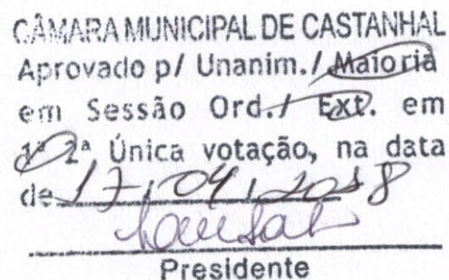 CÂMARA MUNICIPAL DE CASTANHAL
Aprovado p/ Unanim./ Maioria
em Sessão Ord./ Ext. em
1ª 2ª Única votação, na data
de 17/04/2018
Presidente